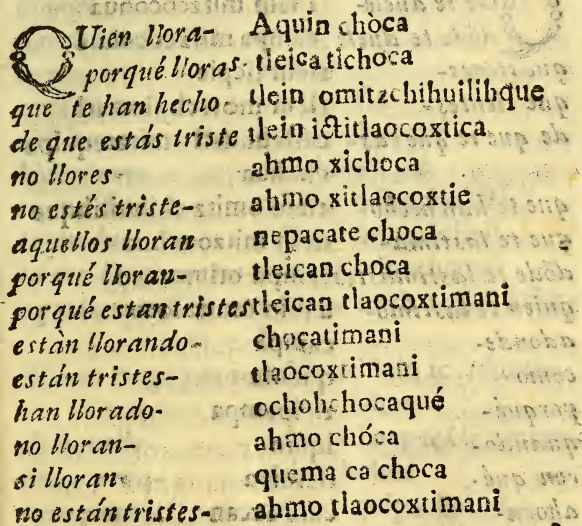 QUien llora- Aquin chòca
porqué lloras- tleica tichoca
que te han hecho- tlein omitzchihuilihque
de que estás triste tlein ictitlaocoxtica
no llores- ahmo xichoca
no estés triste- ahmo xitlaocoxtie
aquellos lloran nepacate choca
porqué lloran- tleican choca
porqué estan tristes tleican tlaocoxtimani
estàn llorando- chocatimani
están tristes- tlaocoxtimani
han llorado- ochohchocaqué
no lloran- ahmo chóca
si lloran- quema ca choca
no están tristes- ahmo tlaocoxtimani